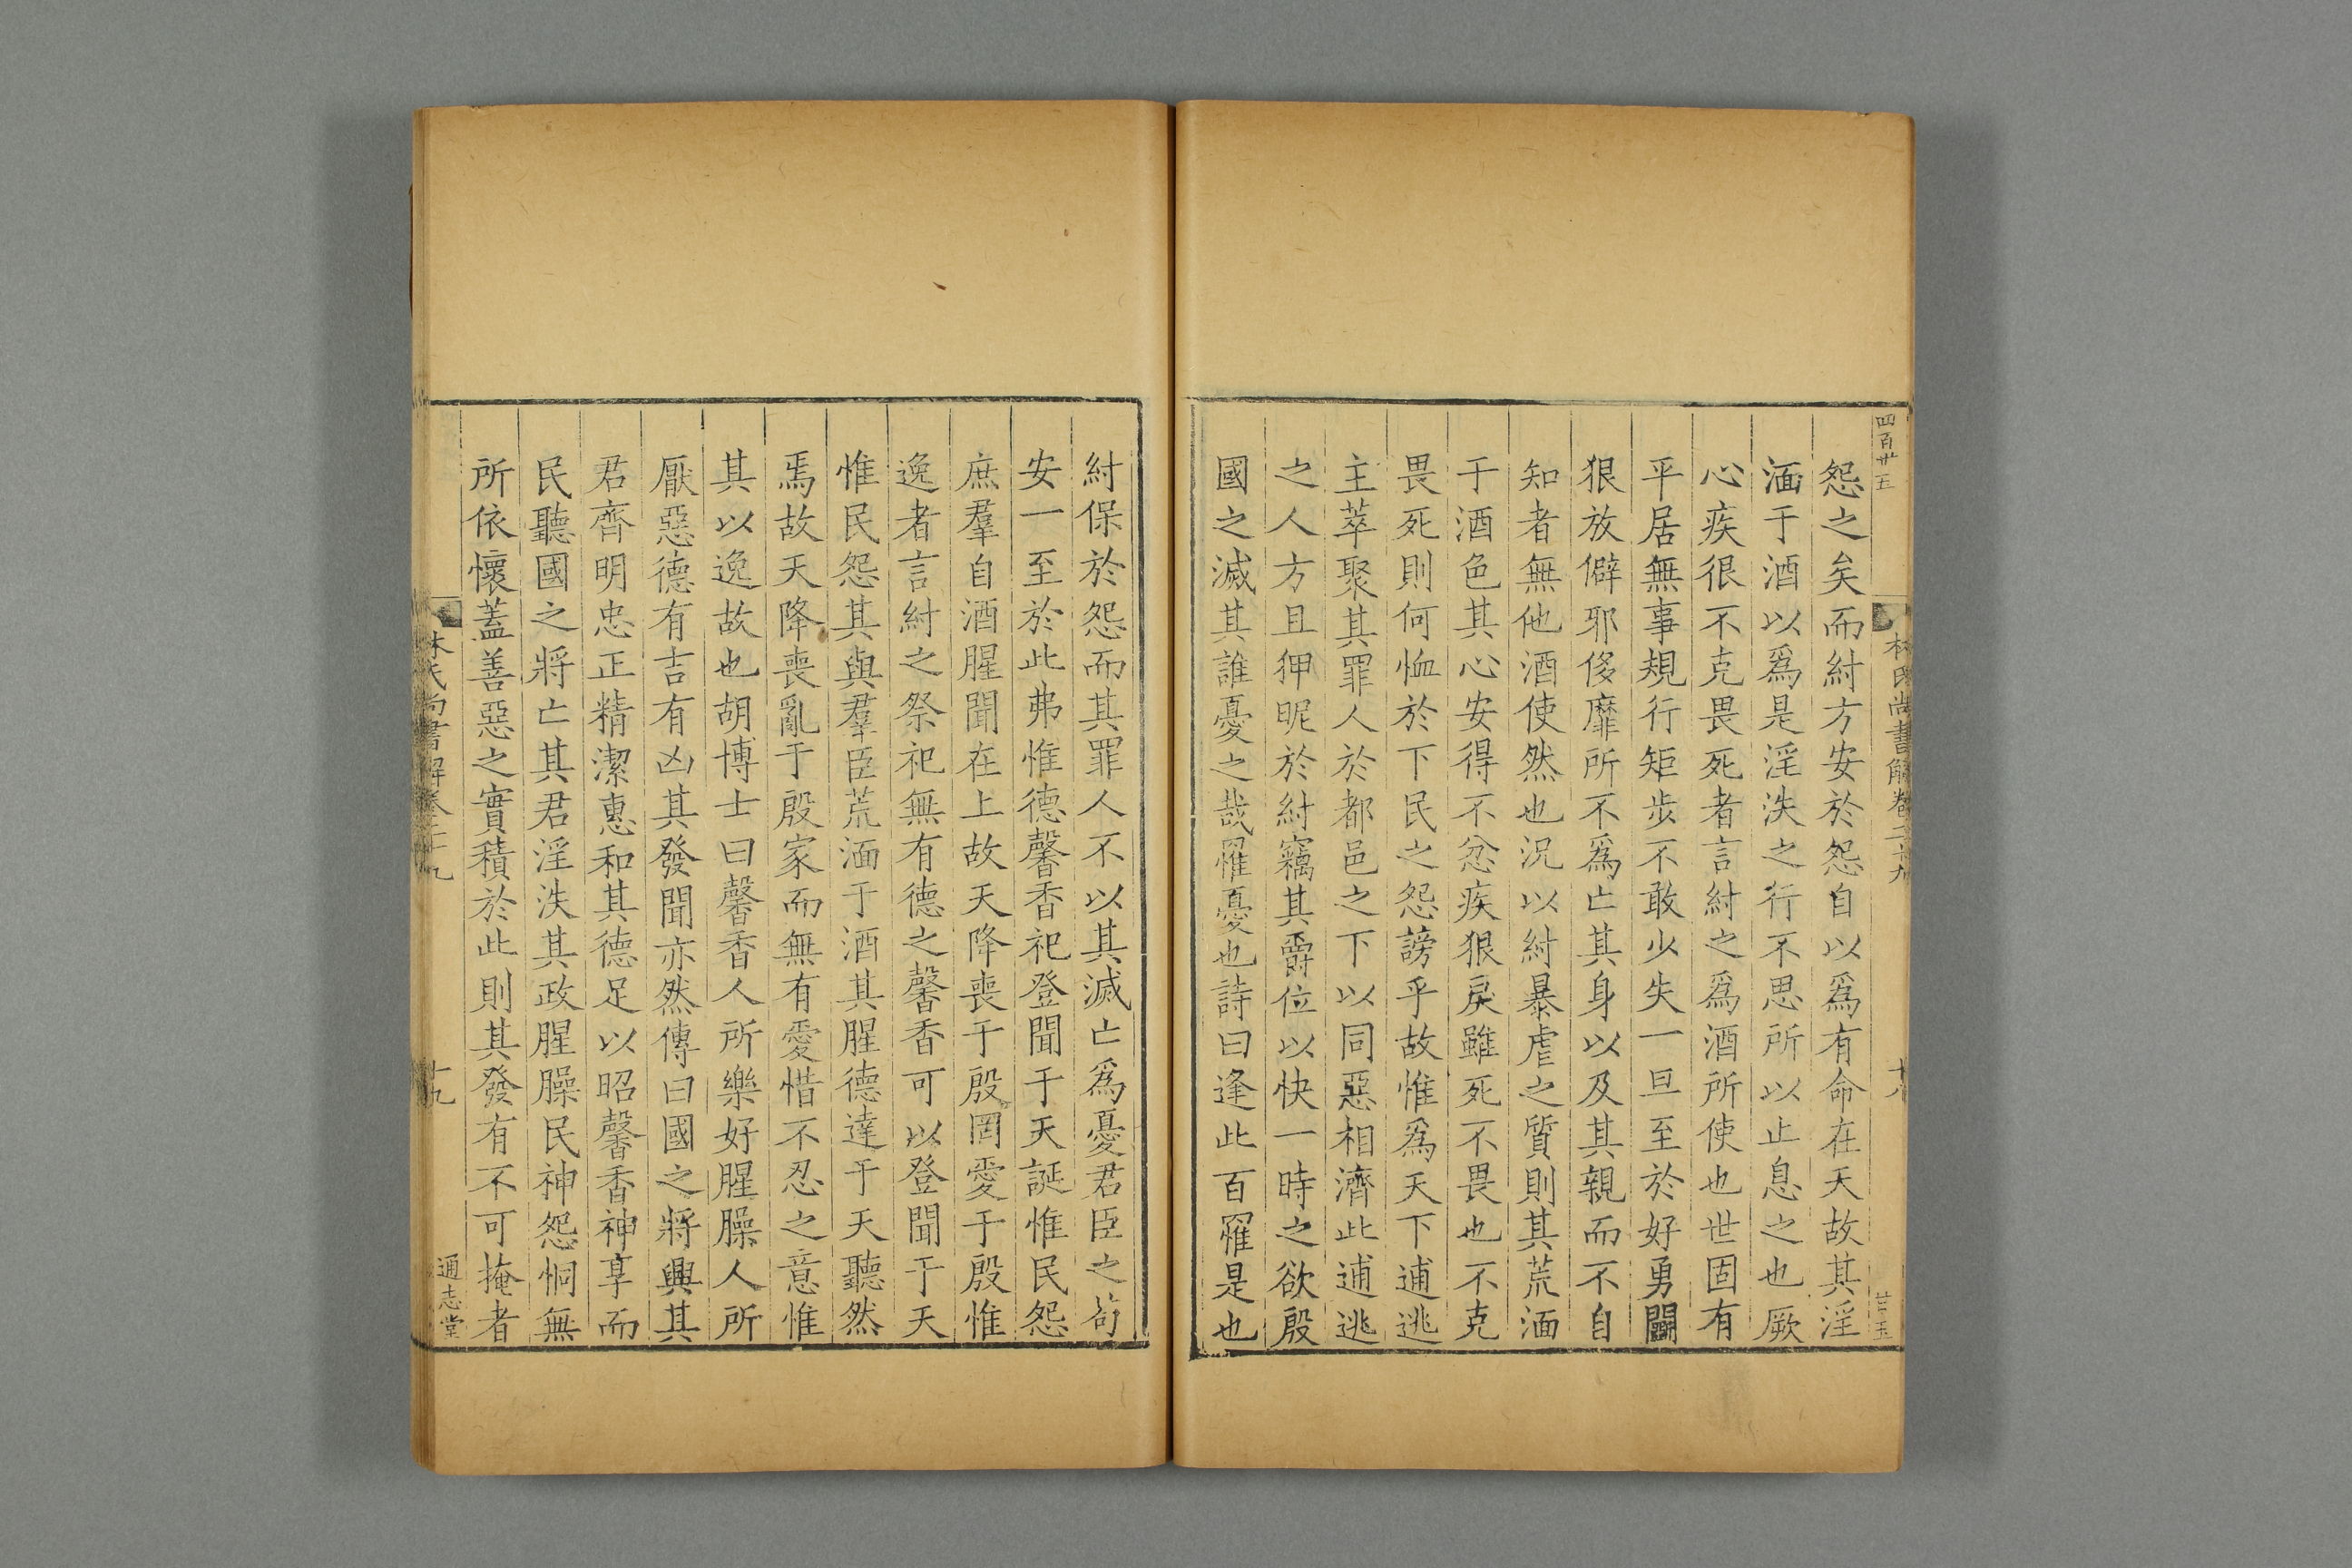 四百廿五
林氏尚書解卷二十九
十八
怨之矣而紂方安於怨自以爲有命在天故其淫
湎于酒以爲是淫泆之行不思所以止息之也厥
心疾很不克畏死者言紂之爲酒所使也世固有
平居無事規行矩步不敢少失一旦至於好勇鬭
狠放僻邪侈靡所不爲亡其身以及其親而不自
知者無他酒使然也況以紂暴虐之質則其荒湎
于酒色其心安得不忿疾狠戾雖死不畏也不克
畏死則何恤於下民之怨謗乎故惟爲天下逋逃
主萃聚其罪人於都邑之下以同惡相濟此逋逃
之人方且狎昵於紂竊其爵位以快一時之欲殷
國之滅其誰憂之哉罹憂也詩曰逢此百罹是也
紂保於怨而其罪人不以其滅亡爲憂君臣之苟
安一至於此弗惟德馨香祀登聞于天誕惟民怨
庶羣自酒腥聞在上故天降喪于殷罔愛于殷惟
逸者言紂之祭祀無有德之馨香可以登聞于天
惟民怨其與羣臣荒湎于酒其腥德達于天聽然
焉故天降喪亂于殷家而無有愛惜不忍之意惟
其以逸故也胡博士曰馨香人所樂好腥臊人所
厭惡德有吉有凶其發聞亦然傳曰國之將興其
君齊明忠正精潔惠和其德足以昭馨香神享而
民聽國之將亡其君淫泆其政腥臊民神怨恫無
所依懷蓋善惡之實積於此則其發有不可掩者
林氏尚書解卷二十九
十九
通志堂